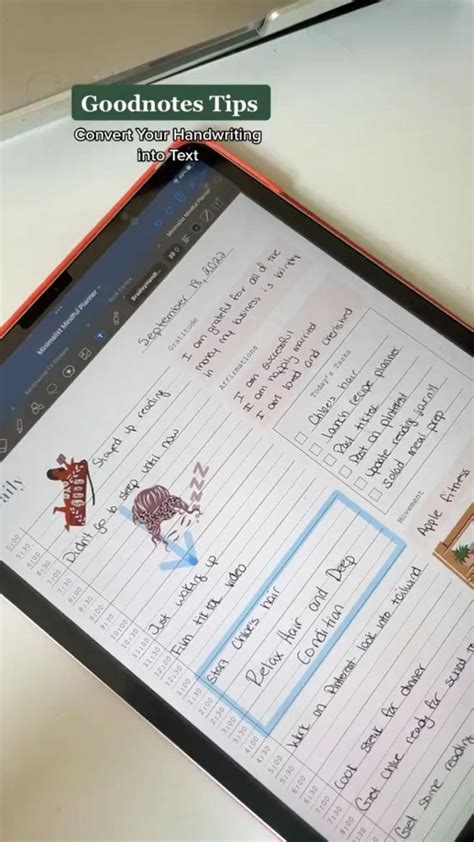 Goodnotes Tips
Convert Your Handwriting
into Text
Minimalist Mindful Planner
Minimalist Mindful Planner
September 18, 2022
Gratitude
I am grateful for all of the
money my business is bringing
in
Affirmations
I am successful
I am happily married
I am loved and cherished
Today's Tasks
Chloe's hair
Launch recipe planner
Post tiktok
Post on pinterest
update reading journal
Salad meal prep
Movement
Apple fitness
Stayed up reading
Didn't go to sleep until now
zzz
Just waking up
Film tiktok video
Start Chloe's hair
Relax Hair and Deep
Condition
Work on Pinterest look into tailwind
Cook steak for dinner
Get Chloe ready for school
Get some reading
5:00
5:30
6:00
6:30
7:00
7:30
8:00
8:30
9:00
9:30
10:00
10:30
11:00
11:30
12:00
12:30
1:00
1:30
2:00
2:30
3:00
3:30
4:00
4:30
5:00
5:30
6:00
6:30
7:00
7:30
8:00